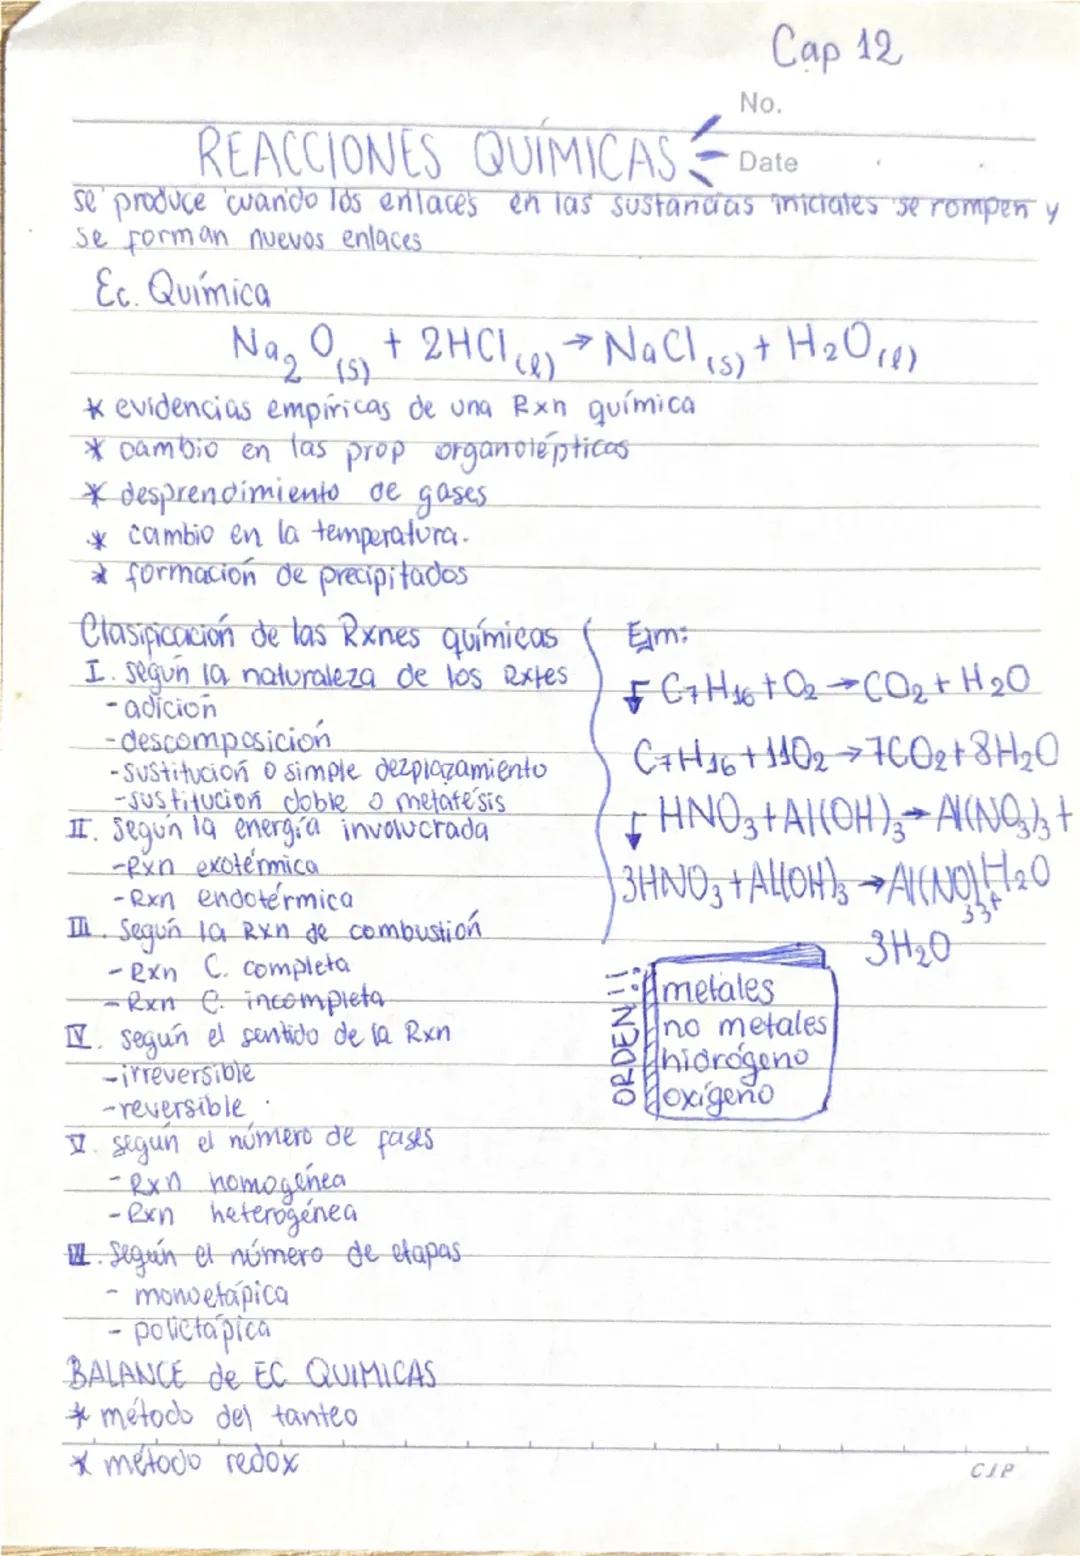 Cap 12
No.
REACCIONES QUÍMICAS
Date
se produce cuando los enlaces en las sustancias iniciales se rompen y
se forman nuevos enlaces
Ec. Química
Na₂O(s) + 2HCl(l) → NaCl(s) + H₂O(l)
* evidencias empíricas de una Rxn química
* cambio en las prop organolépticas
* desprendimiento de gases
* cambio en la temperatura.
* formación de precipitados
Clasificación de las Rxnes químicas
I. según la naturaleza de los Rxtes
- adición
- descomposición
- sustitución o simple dezplazamiento
- sustitución doble o metatésis
II. Según la energía involucrada
- Rxn exotérmica
- Rxn endotérmica
III. Según la Rxn de combustión
- Rxn C. completa
- Rxn C. incompleta
IV. según el sentido de la Rxn
- irreversible
- reversible
V. según el número de fases
- Rxn homogénea
- Rxn heterogénea
VI. Según el número de etapas
- monoetápica
- polietápica
BALANCE de EC QUIMICAS
* método del tanteo
* método redox
Ejm:
C₇H₁₆ + O₂ → CO₂ + H₂O
C₇H₁₆ + 11O₂ → 7CO₂ + 8H₂O
HNO₃ + Al(OH)₃ → Al(NO₃)₃ +
H₂O
3HNO₃ + Al(OH)₃ → Al(NO₃)₃ +
3H₂O
ORDEN!!
metales
no metales
hidrógeno
oxígeno
CJP